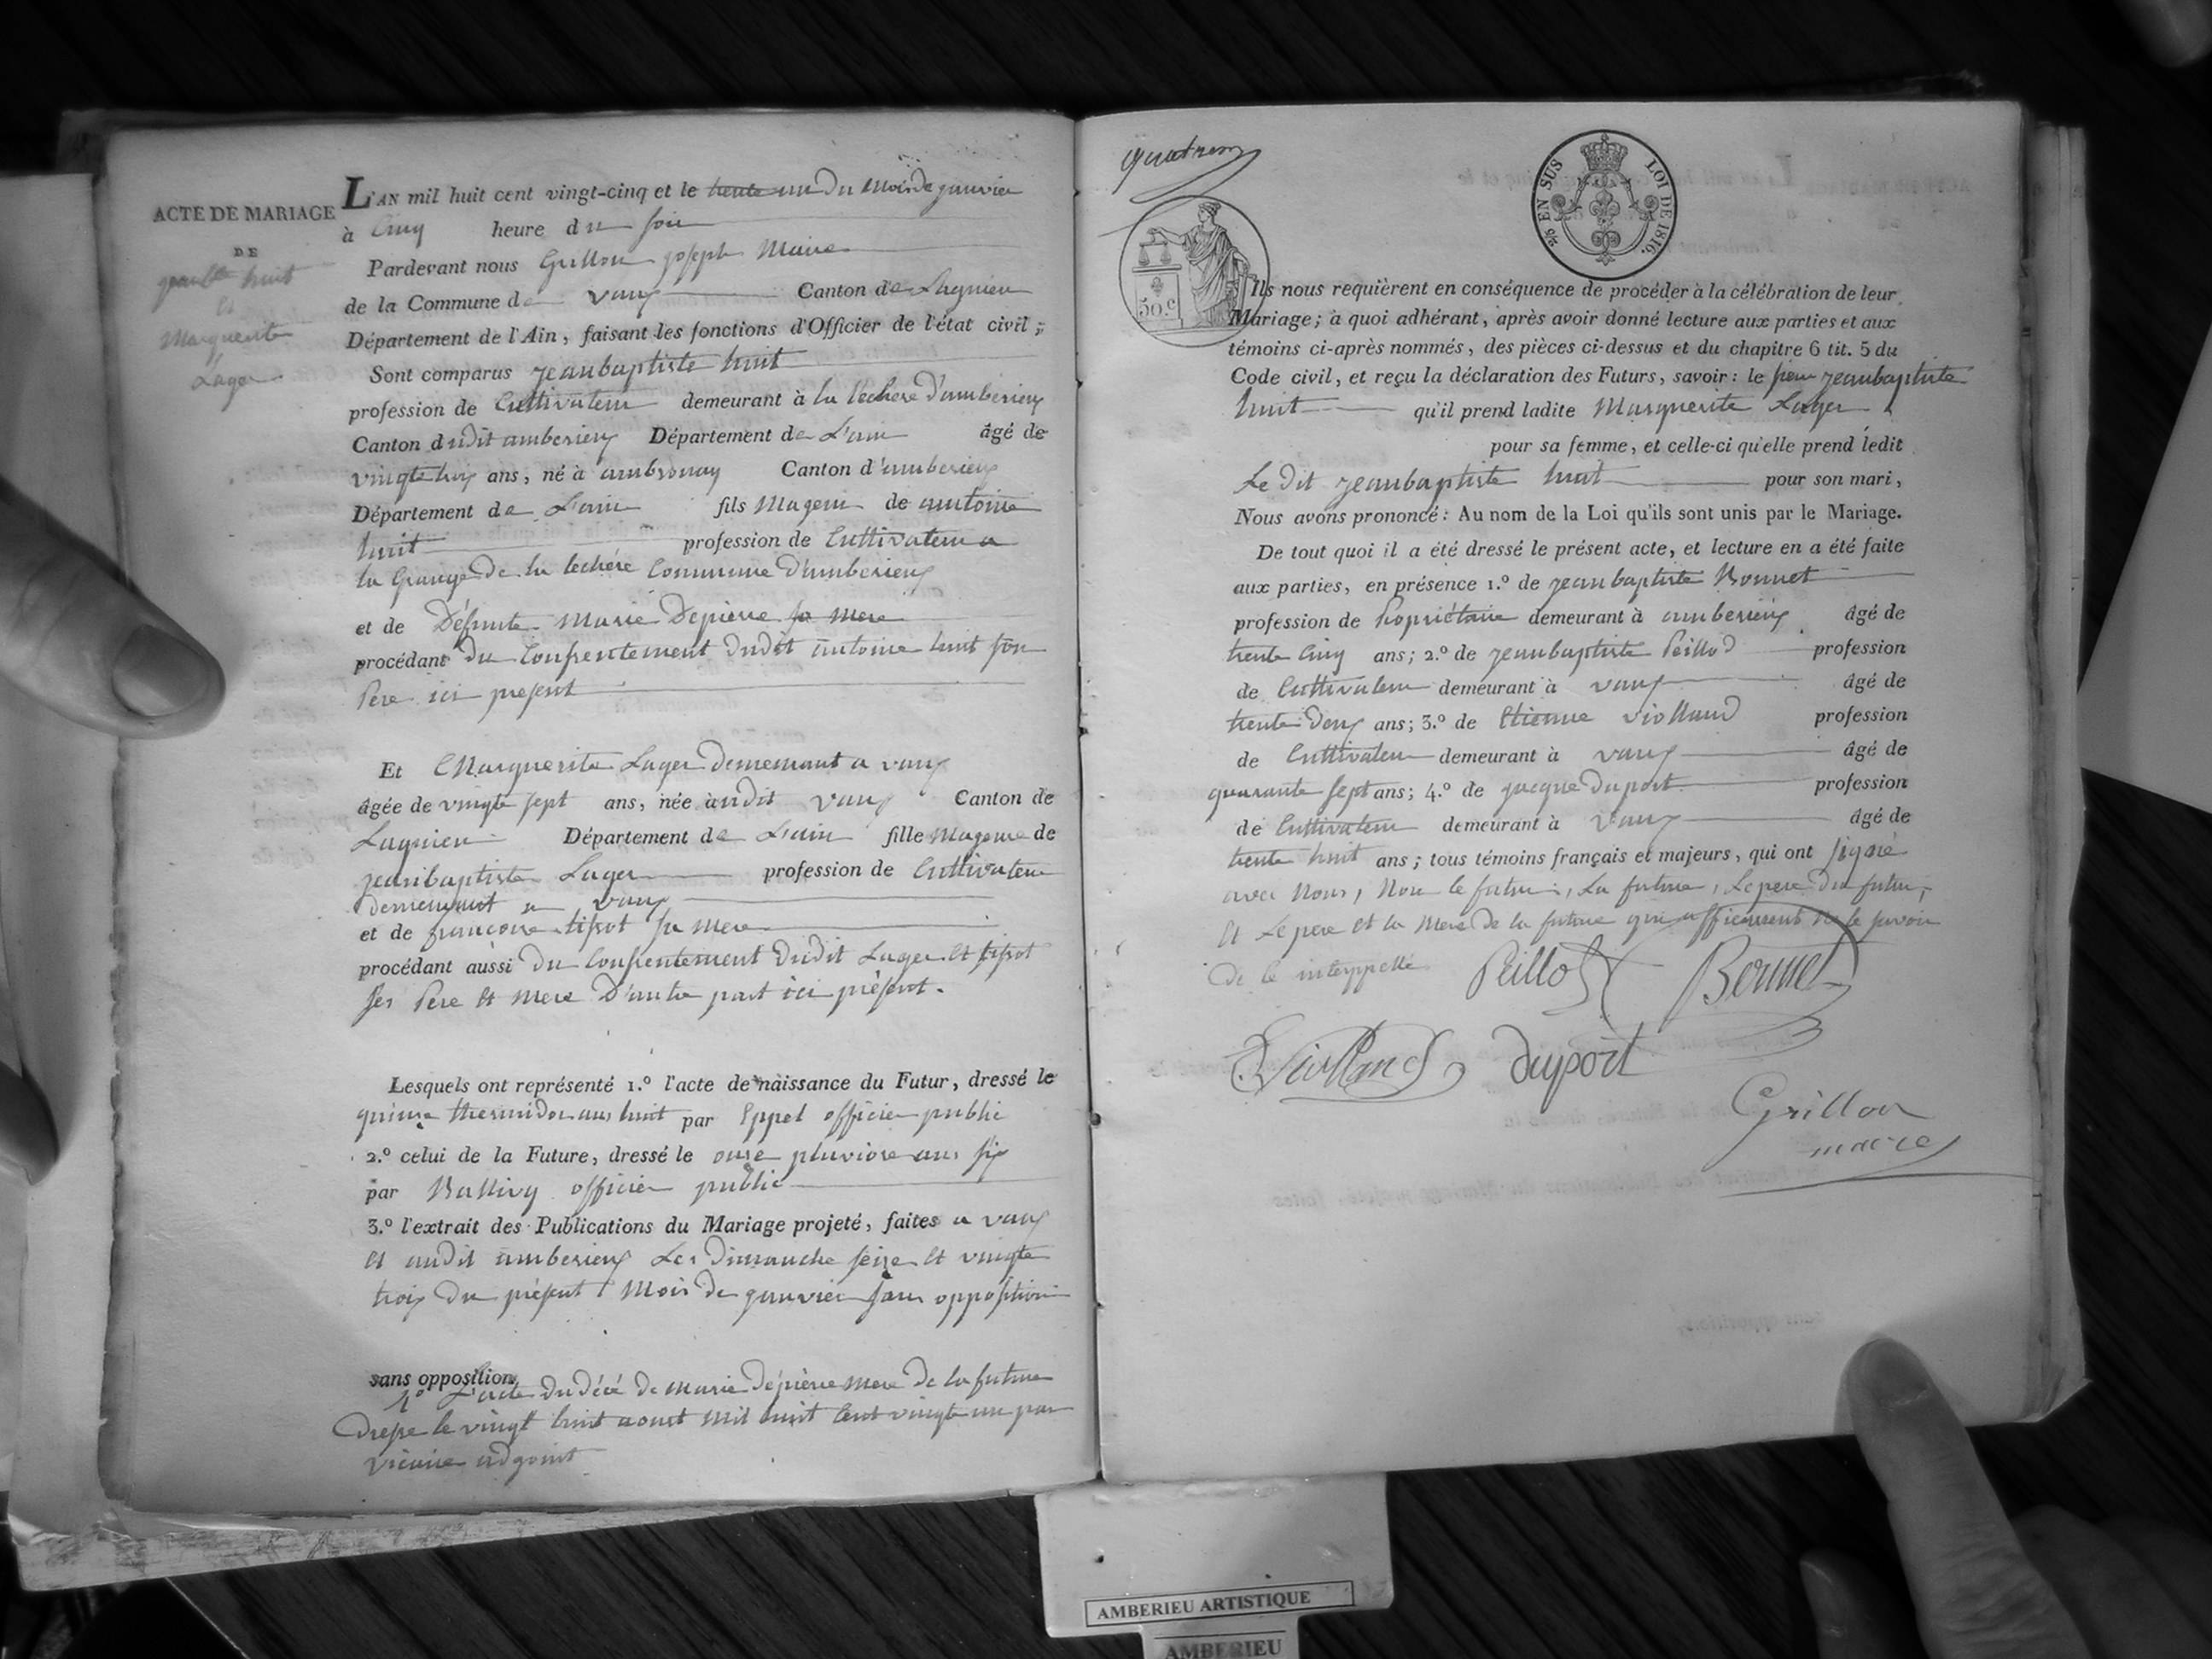 ACTE DE MARIAGE
DE
jean bte huit
et
Marguerite
Lager
L'AN mil huit cent vingt-cinq et le trente un du mois de janvier
à Cinq heure du soir
Pardevant nous Grillon joseph Maire
de la Commune de vaux Canton de Lagnieu
Département de l'Ain, faisant les fonctions d'Officier de l'état civil ;
Sont comparus jeanbaptiste huit
profession de Cultivateur demeurant à la lechere d'amberieux
Canton dudit amberieux Département de L'ain âgé de
vingt trois ans, né à ambronay Canton d'amberieux
Département de L'ain fils Mageur de antoine
huit profession de Cultivateur a
la Grange de la lechére Commune d'amberieux
et de Défunte Marie Depierre sa mere
procédant du Consentement dudit antoine huit son
Pere ici present
Et Marguerite Lager demeurant a vaux
âgée de vingt sept ans, née audit vaux Canton de
Lagnieu Département de L'ain fille Mageure de
jeanbaptiste Lager profession de Cultivateur
demeurant a vaux
et de françoise tissot sa mere
procédant aussi du Consentement dudit Lager et tissot
ses Pere et mere D'autre part ici présent.
Lesquels ont représenté 1.º l'acte de naissance du Futur, dressé le
quinze thermidor ans huit par Eppel officier public
2.º celui de la Future, dressé le onze pluviose ans six
par Ballivy officier public
3.º l'extrait des Publications du Mariage projeté, faites a vaux
et audit amberieux Les Dimanche seize et vingte
trois du présent Mois de janvier sans opposition
sans opposition,
4º L'acte du décé de Marie depierre Mere de la future
Dresse le vingt huit aoust mil huit Cent vingte un par
adjoint
50.c
EN SUS LOI DE 1816.
Ils nous requièrent en conséquence de procéder à la célébration de leur
Mariage; à quoi adhérant, après avoir donné lecture aux parties et aux
témoins ci-après nommés, des pièces ci-dessus et du chapitre 6 tit. 5 du
Code civil, et reçu la déclaration des Futurs, savoir: le jeanbaptiste
huit qu'il prend ladite Marguerite Lager
pour sa femme, et celle-ci qu'elle prend ledit
Le dit jeanbaptiste huit pour son mari,
Nous avons prononcé: Au nom de la Loi qu'ils sont unis par le Mariage.
De tout quoi il a été dressé le présent acte, et lecture en a été faite
aux parties, en présence 1.º de jeanbaptiste Bonnet
profession de Propriétaire demeurant à amberieux âgé de
trente Cinq ans; 2.º de jeanbaptiste Peillod profession
de Cultivateur demeurant à vaux âgé de
trente deux ans; 3.º de Etienne violland profession
de Cultivateur demeurant à vaux âgé de
quarante sept ans; 4.º de jacque duport profession
de Cultivateur demeurant à vaux âgé de
trente huit ans; tous témoins français et majeurs, qui ont signé
avec Nous, Non le futur, La future, Le pere du futur,
et Le pere et la Mere de la future qui ne le savoir
de ce interppellé
Peillod Bonnet
E. Violland duport
Grillon
maire
AMBERIEU ARTISTIQUE
AMBERIEU